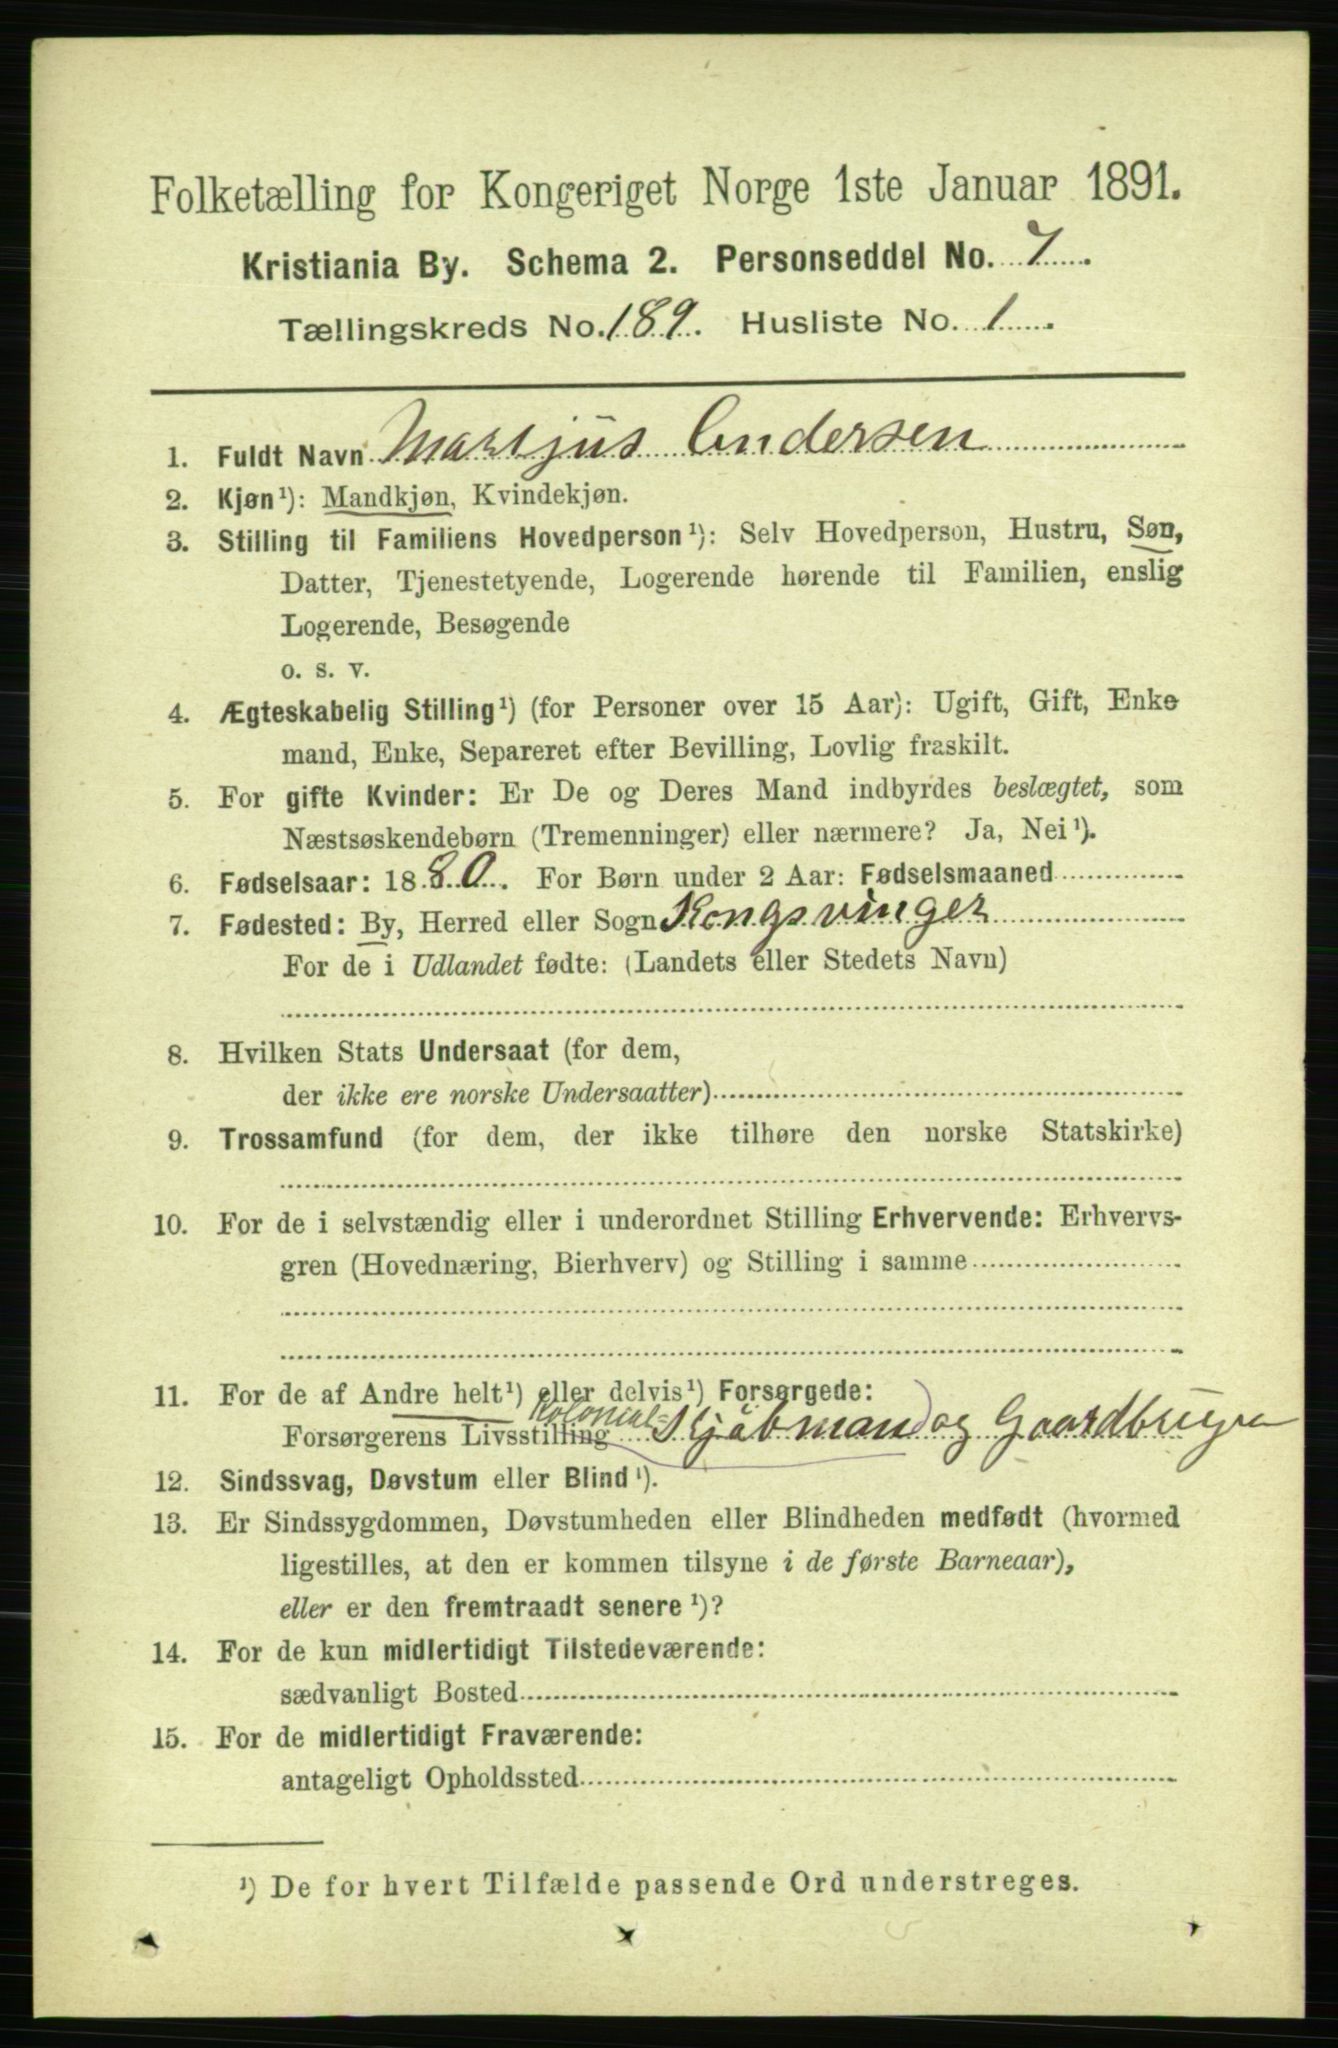 Folketælling for Kongeriget Norge 1ste Januar 1891.
Kristiania By. Schema 2. Personseddel No. 7.
Tællingskreds No. 189. Husliste No. 1
1. Fuldt Navn Martjus Andersen
2. Kjøn¹): Mandkjøn, Kvindekjøn.
3. Stilling til Familiens Hovedperson¹): Selv Hovedperson, Hustru, Søn,
Datter, Tjenestetyende, Logerende hørende til Familien, enslig
Logerende, Besøgende
o. s. v.
4. Ægteskabelig Stilling¹) (for Personer over 15 Aar): Ugift, Gift, Enke
mand, Enke, Separeret efter Bevilling, Lovlig fraskilt.
5. For gifte Kvinder: Er De og Deres Mand indbyrdes beslægtet, som
Næstsøskendebørn (Tremenninger) eller nærmere? Ja, Nei¹).
6. Fødselsaar: 1880. For Børn under 2 Aar: Fødselsmaaned
7. Fødested: By, Herred eller Sogn Kongsvinger
For de i Udlandet fødte: (Landets eller Stedets Navn)
8. Hvilken Stats Undersaat (for dem,
der ikke ere norske Undersaatter)
9. Trossamfund (for dem, der ikke tilhøre den norske Statskirke)
10. For de i selvstændig eller i underordnet Stilling Erhvervende: Erhvervs-
gren (Hovednæring, Bierhverv) og Stilling i samme
11. For de af Andre helt¹) eller delvis¹) Forsørgede:
Forsørgerens Livsstilling Kolonial-Kjøbmand og Gaardbruger
12. Sindssvag, Døvstum eller Blind¹).
13. Er Sindssygdommen, Døvstumheden eller Blindheden medfødt (hvormed
ligestilles, at den er kommen tilsyne i de første Barneaar),
eller er den fremtraadt senere¹)?
14. For de kun midlertidigt Tilstedeværende:
sædvanligt Bosted
15. For de midlertidigt Fraværende:
antageligt Opholdssted
¹) De for hvert Tilfælde passende Ord understreges.